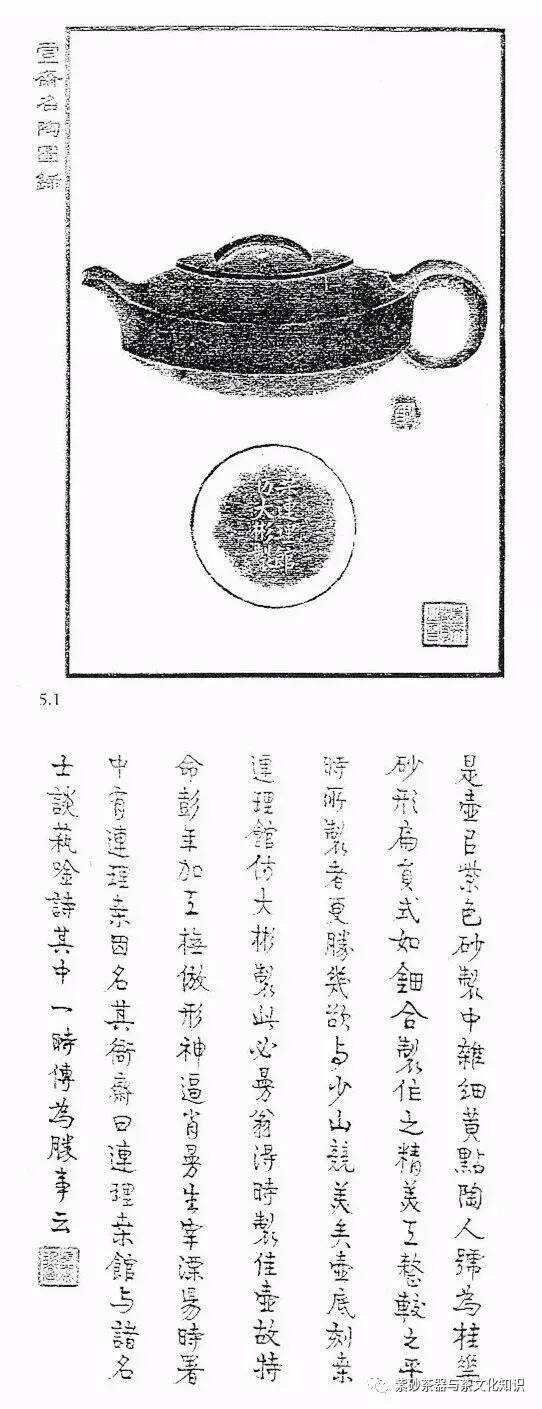 壹齋名陶圖錄
桑連理館
仿大彬製
5.1
是壺㠯紫色砂製中雜細黄點陶人號為桂華
砂形扁員式如鈿合製作之精美工整較之平
時所製者更勝幾欲与少山競美矣壺底刻桑
連理館仿大彬製此必曼翁得時製佳壺故特
命彭年加工橅倣形神逼肖曼生宰溧昜時署
中有連理桑因名其衙齋曰連理桑館与諸名
士談蓺唫詩其中一時傳為勝事云
紫砂茶器与茶文化知识